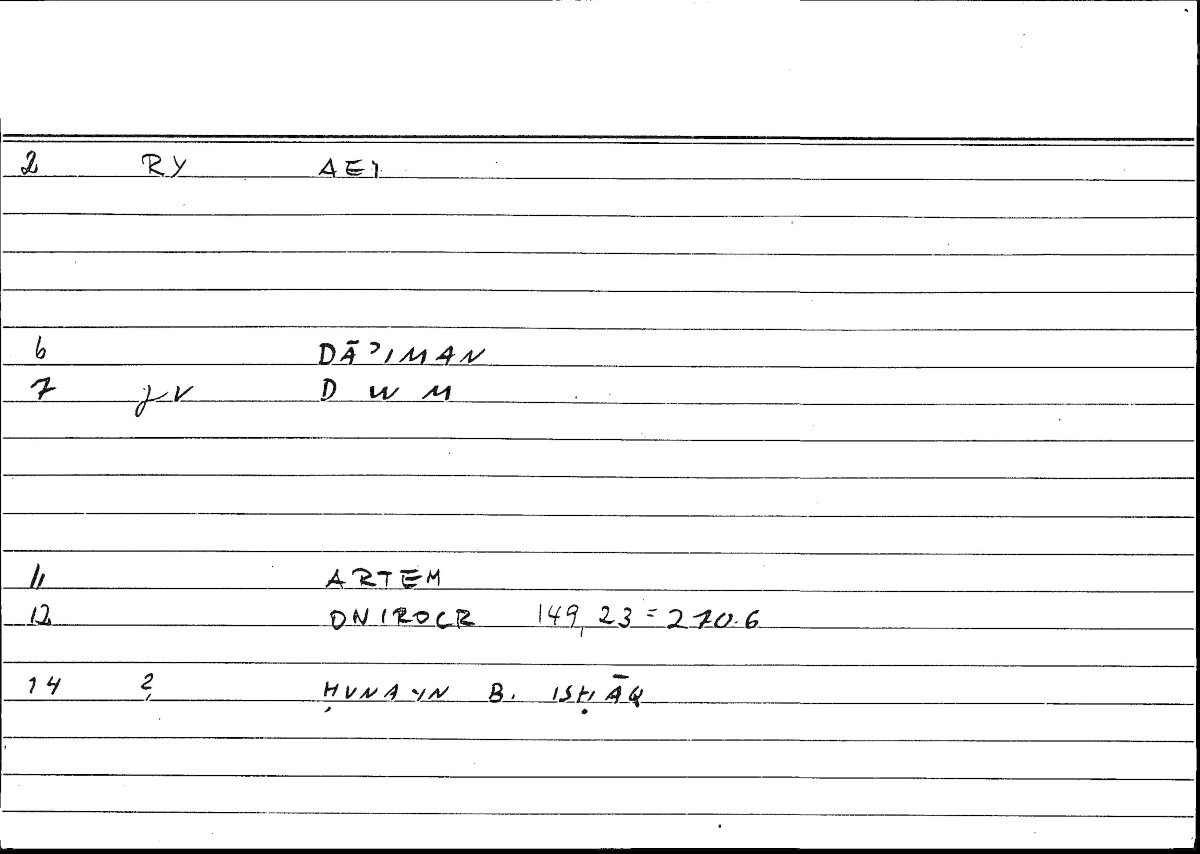 2 RY AEI
6 DĀʾIMAN
7 JV D W M
11 ARTEM
12 ONIROCR 149,23=270.6
14 2, ḤUNAYN B. ISḤĀQ